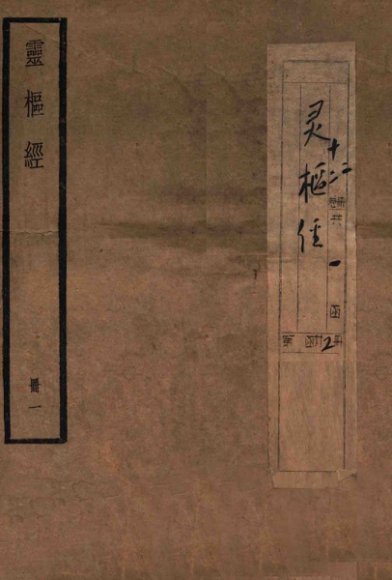 靈樞經
冊一
灵樞经
十二
共一函
第 函共2冊